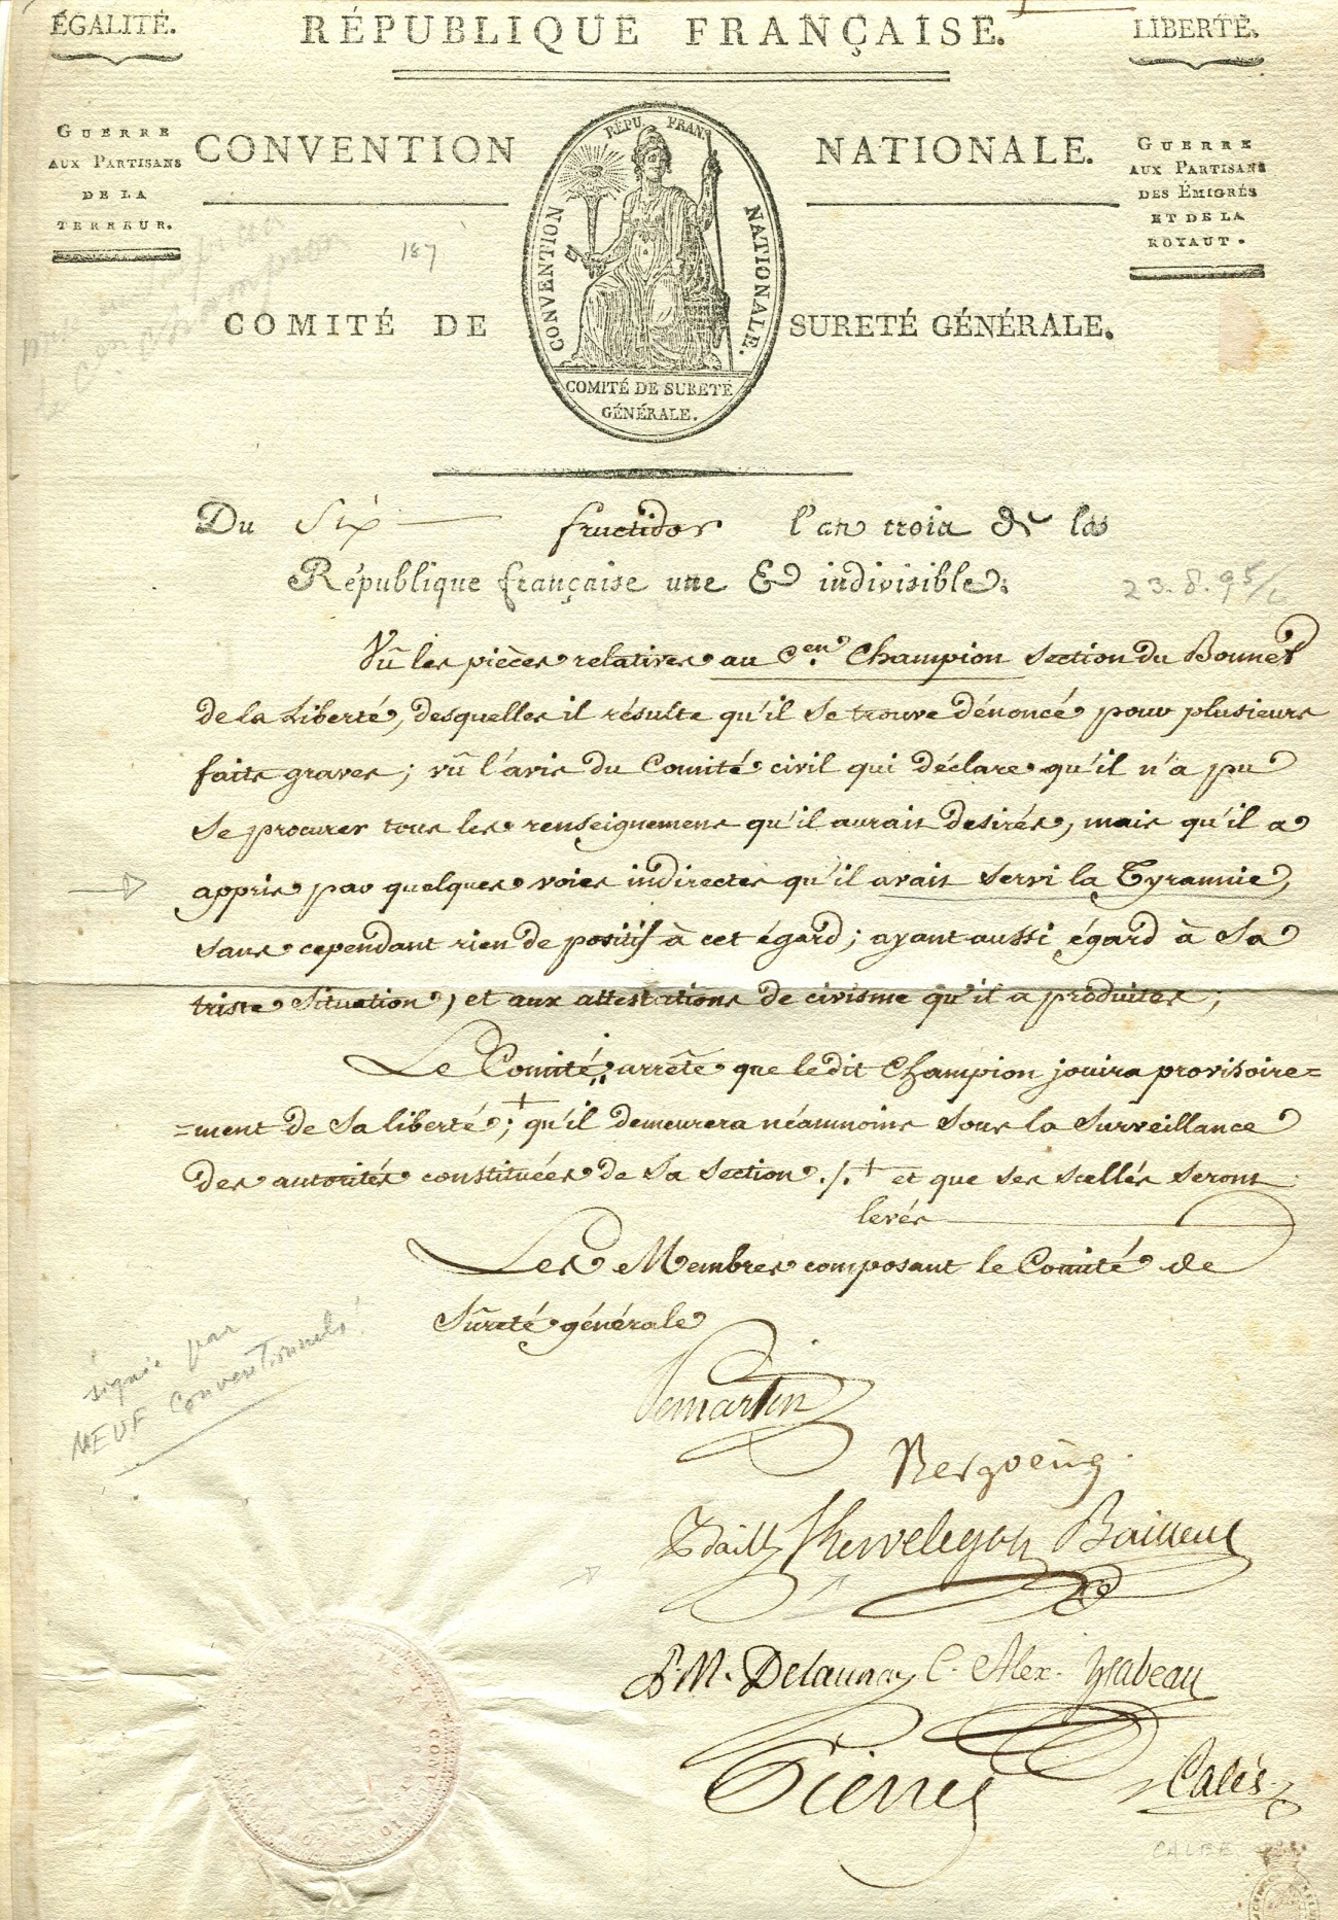 ÉGALITÉ.
RÉPUBLIQUE FRANÇAISE.
LIBERTÉ.
GUERRE
AUX PARTISANS
DE LA
TERREUR.
CONVENTION NATIONALE.
GUERRE
AUX PARTISANS
DES ÉMIGRÉS
ET DE LA
ROYAUT.
RÉPU. FRAN.
CONVENTION NATIONALE.
COMITÉ DE SURETÉ
GÉNÉRALE.
187
COMITÉ DE SURETÉ GÉNÉRALE.
Du Six fructidor l'an trois de la
République française une & indivisible.
23.8.95
Vû les pièces relatives au C.en Champion section du Bonnet
de la Liberté, desquelles il résulte qu'il se trouve dénoncé pour plusieurs
faits graves; vû l'avis du Comité civil qui déclare qu'il n'a pu
se procurer tous les renseignemens qu'il aurait desirés, mais qu'il a
appris par quelques voies indirectes qu'il avait servi la Tyrannie,
sans cependant rien de positif à cet égard; ayant aussi égard à sa
triste situation, et aux attestations de civisme qu'il a produites;
Le Comité arrête que ledit Champion jouira provisoire=
=ment de sa liberté; + qu'il demeurera néammoins sous la surveillance
des autorités constituées de sa section ./. + et que ses scellés seront
levés
Les Membres composant le Comité de
Sûreté générale
signée par
NEUF Conventionnels!
Pemartin
Bergoeing.
Bailly Kervelegan Bailleul
P. M. Delaunay C. Alex. Ysabeau
Pierret
Calès